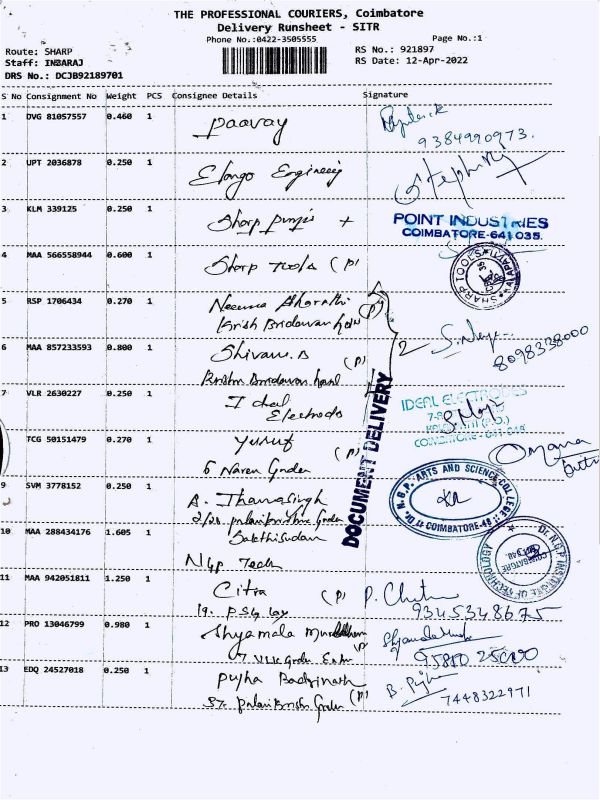 THE PROFESSIONAL COURIERS, Coimbatore
Delivery Runsheet - SITR
Phone No.:0422-3505555
Page No.:1
Route: SHARP
RS No.: 921897
Staff: INBARAJ
RS Date: 12-Apr-2022
DRS No.: DCJB92189701
S No Consignment No Weight PCS Consignee Details Signature
1 DVG 81057557 0.460 1 paavay
9384990973.
2 UPT 2036878 0.250 1 Elango Engineerig
3 KLM 339125 0.250 1 Sharp pumps +
POINT INDUSTRIES
COIMBATORE-641 035.
4 MAA 566558944 0.600 1 Sharp Tools (P)
SHARP TOOLS
5 RSP 1706434 0.270 1 Neema Bharathi (P)
Krish Bridavan
6 MAA 857233593 0.800 1 Shivani.B (P)
2
8098338000
7 VLR 2630227 0.250 1 Ideal
Electrodo
IDEAL ELECTRODES
COIMBATORE - 641 048
TCG 50151479 0.270 1 yusuf (P)
6 Naren Garden
DOCUMENT DELIVERY
9 SVM 3778152 0.250 1 A. Thamasingh
Dr. N.G.P. ARTS AND SCIENCE COLLEGE
COIMBATORE-48
10 MAA 288434176 1.605 1 NGP Tech
Dr. N.G.P. INSTITUTE OF TECHNOLOGY
COIMBATORE
11 MAA 942051811 1.250 1 Citra (P)
19. PSG
9345348675
12 PRO 13046799 0.980 1 Shyamala
95850 25000
13 EDQ 24527018 0.250 1 Pujha Badrinath
(P)
7448322971